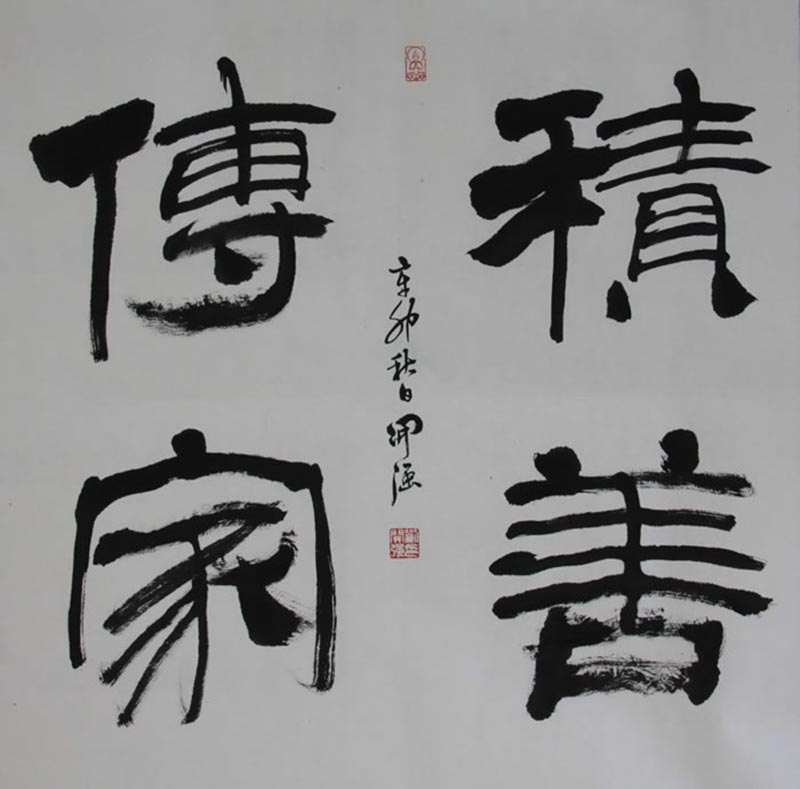 積善
傳家
辛卯秋日開強